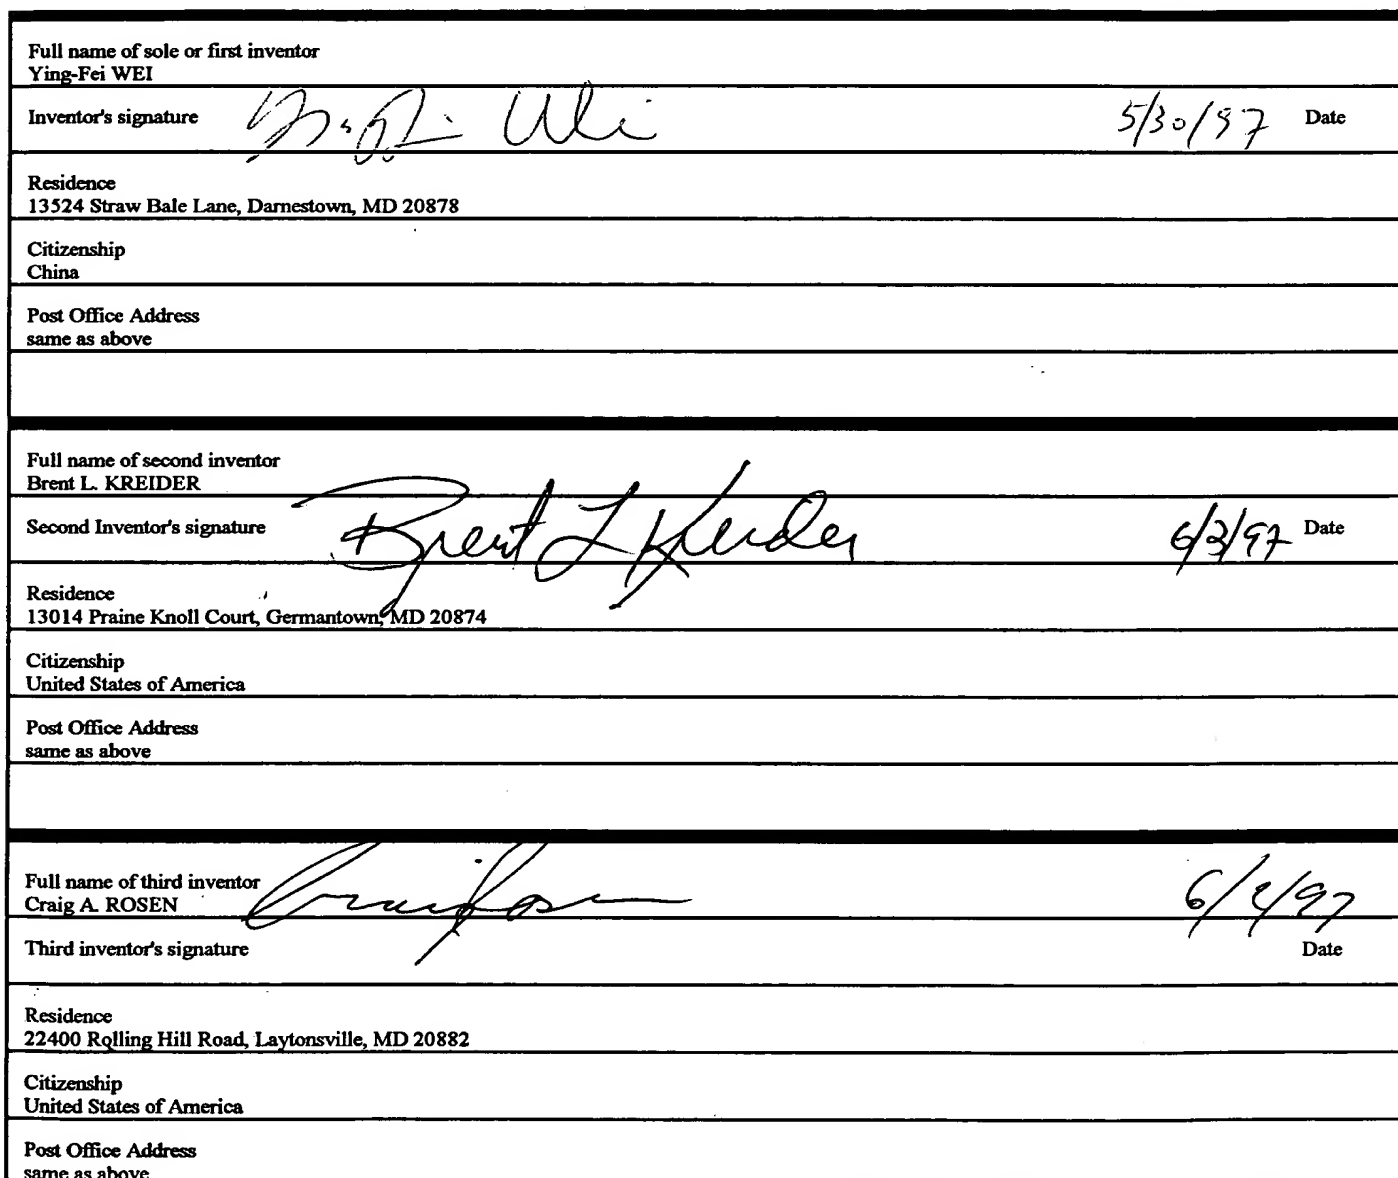 Full name of sole or first inventor
Ying-Fei WEI
Inventor's signature 5/30/97 Date
Residence
13524 Straw Bale Lane, Darnestown, MD 20878
Citizenship
China
Post Office Address
same as above
Full name of second inventor
Brent L. KREIDER
Second Inventor's signature Brent L Kreider 6/3/97 Date
Residence
13014 Praine Knoll Court, Germantown, MD 20874
Citizenship
United States of America
Post Office Address
same as above
Full name of third inventor
Craig A. ROSEN
Third inventor's signature Date
Residence
22400 Rolling Hill Road, Laytonsville, MD 20882
Citizenship
United States of America
Post Office Address
same as above